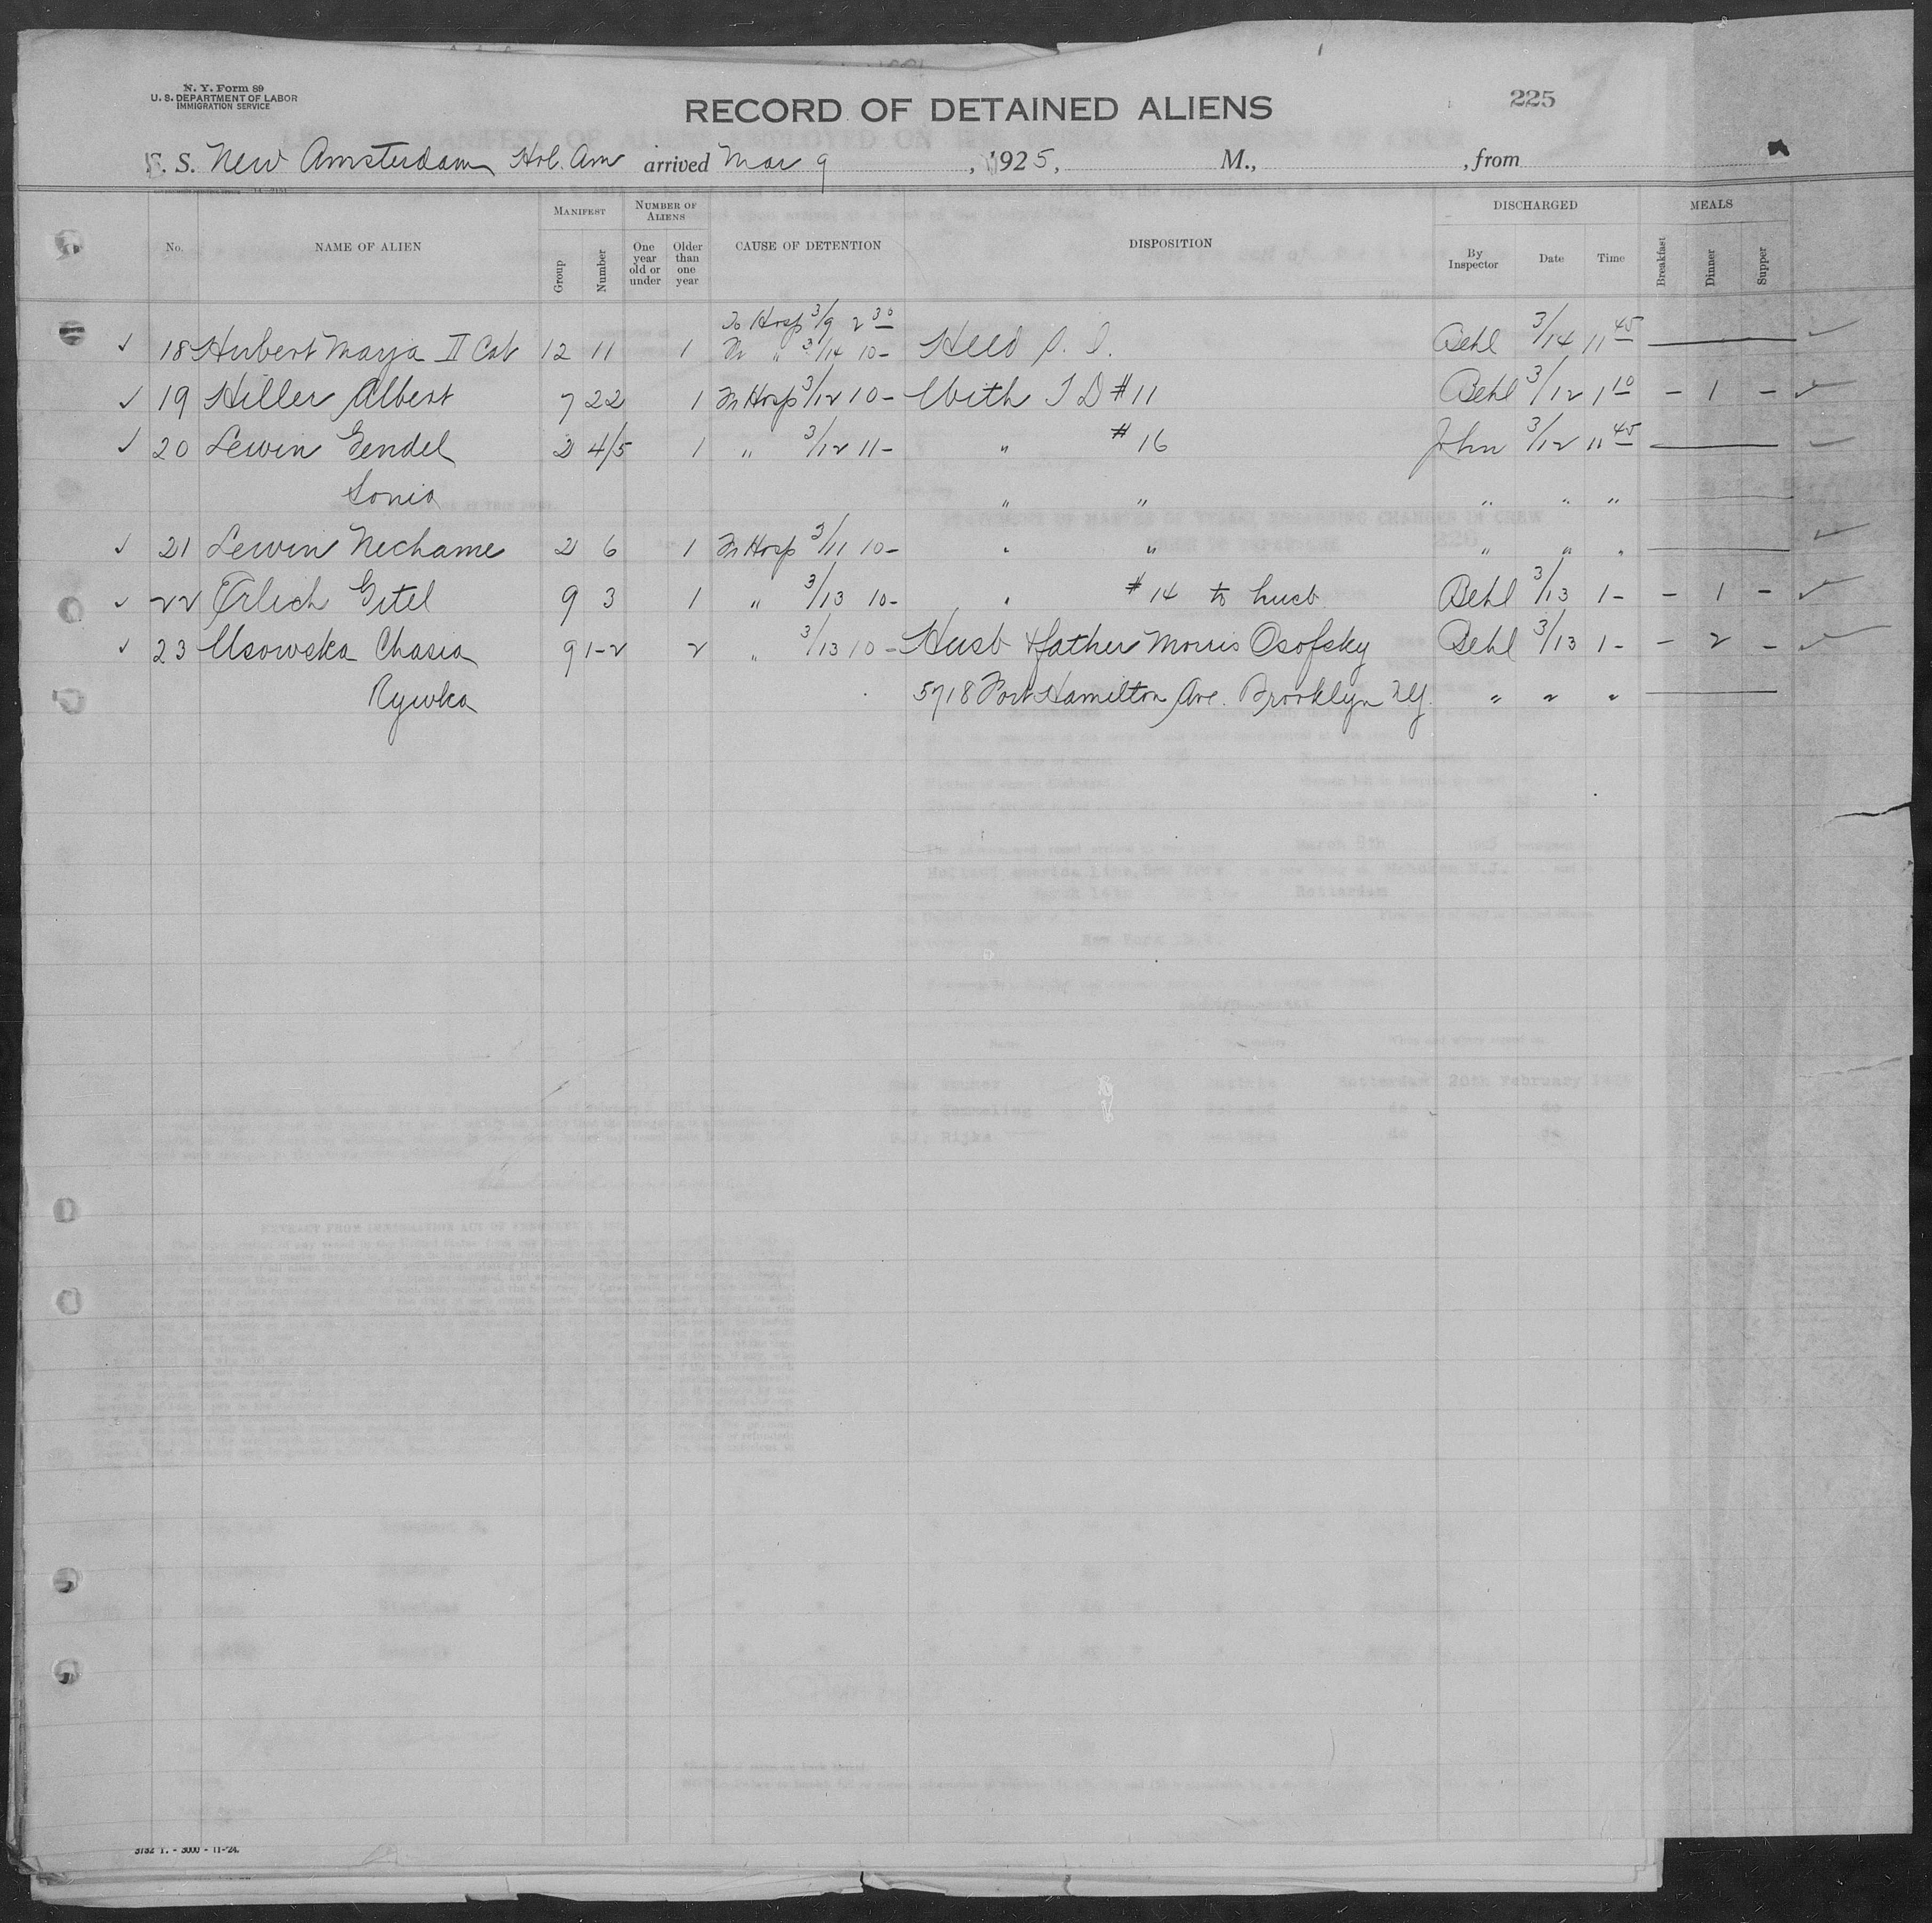 N. Y. Form 89
U. S. DEPARTMENT OF LABOR
IMMIGRATION SERVICE
RECORD OF DETAINED ALIENS
225
S. S. New Amsterdam Hol. Am arrived Mar 9, 1925, M., , from
No. NAME OF ALIEN MANIFEST Group Number NUMBER OF ALIENS One year old or under Older than one year CAUSE OF DETENTION DISPOSITION DISCHARGED By Inspector Date Time MEALS Breakfast Dinner Supper
To Hosp 3/9 2 30
✓ 18 Hubert Marja II Cab 12 11 1 " 3/14 10- Held S. I. Behl 3/14 11 45 ✓
✓ 19 Hiller Albert 7 22 1 Hosp 3/12 10- With T D #11 Behl 3/12 1 10 - 1 - ✓
✓ 20 Lewin Gendel 2 4/5 1 " 3/12 11- " #16 John 3/12 11 45 ✓
Sonia " " " " "
✓ 21 Lewin Nechame 2 6 1 Hosp 3/11 10- " " " " " ✓
✓ 22 Orlich Gitel 9 3 1 " 3/13 10- " #14 to husb Behl 3/13 1- - 1 - ✓
✓ 23 Usowska Chasia 9 1-2 2 " 3/13 10- Husb & father Morris Osofsky Behl 3/13 1- - 2 - ✓
Rywka 5718 Fort Hamilton Ave. Brooklyn NY. " " "
3732 I. - 3000 - 11-24.